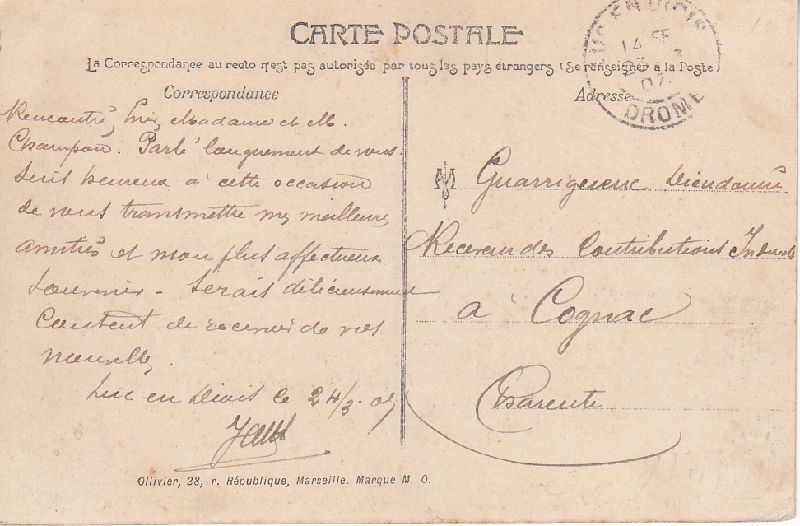 CARTE POSTALE
La Correspondance au recto n'est pas autorisée par tous les pays étrangers (Se renseigner à la Poste)
Correspondance
Adresse
LUC EN DIOIS
DROME
Rencontré hier Madame et M.
Champain. Parlé longuement de vous.
Suis heureux à cette occasion
de vous transmettre mes meilleures
amitiés et mon plus affectueux
souvenir - Serais délicieusement
content de recevoir de vos
nouvelles
Luc en Diois le 24/3. 07
Guarrigueuc Dieudonné
Receveur des Contributions Indirectes
à Cognac
Charente
Ollivier, 28, r. République, Marseille. Marque M. O.